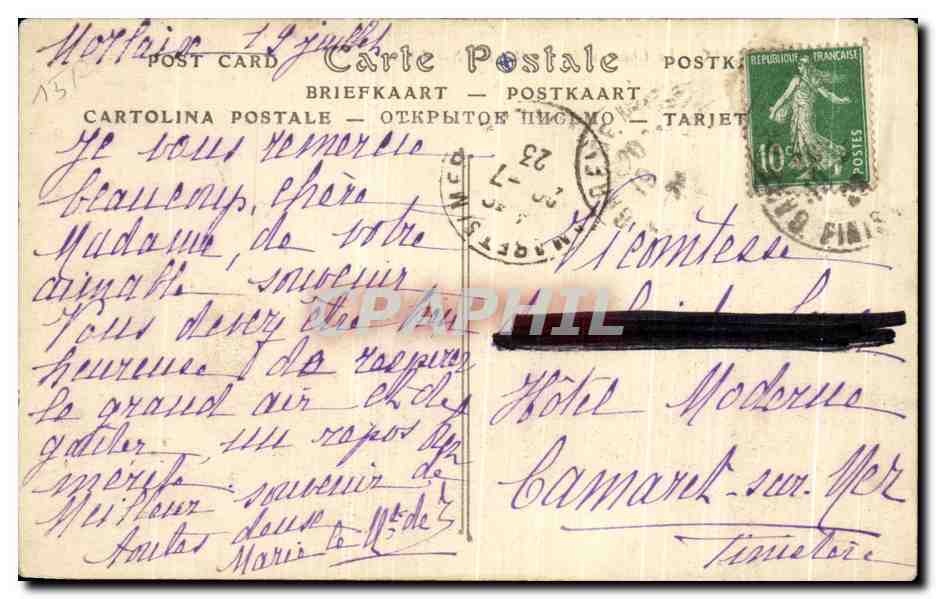 Morlaix 19 juillet
151
POST CARD Carte Postale POSTK
BRIEFKAART — POSTKAART
CARTOLINA POSTALE — ОТКРЫТОЕ ПИСЬМО — TARJET
REPUBLIQUE FRANÇAISE
10c
POSTES
CAMARET S MER
FINISTERE
20 -7
23
FINIS
Je vous remercie
beaucoup, chère
Madame, de votre
aimable souvenir
Vous devez être bien
heureuse de respirer
le grand air et de
goûter un repos bien
mérité.
Meilleur souvenir de
toutes deux
Marie le
Vicomtesse
Hôtel Moderne
Camaret-sur-Mer
Finistère
CPAPHIL